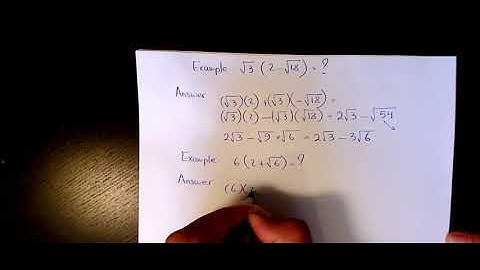 Example √3 (2-√18) = ?
Answer (√3)(2)+(√3)(-√18) =
(√3)(2)-(√3)(√18) = 2√3 - √54
2√3 - √9 * √6 = 2√3 - 3√6
Example 6(2+√6) = ?
Answer (6)(2